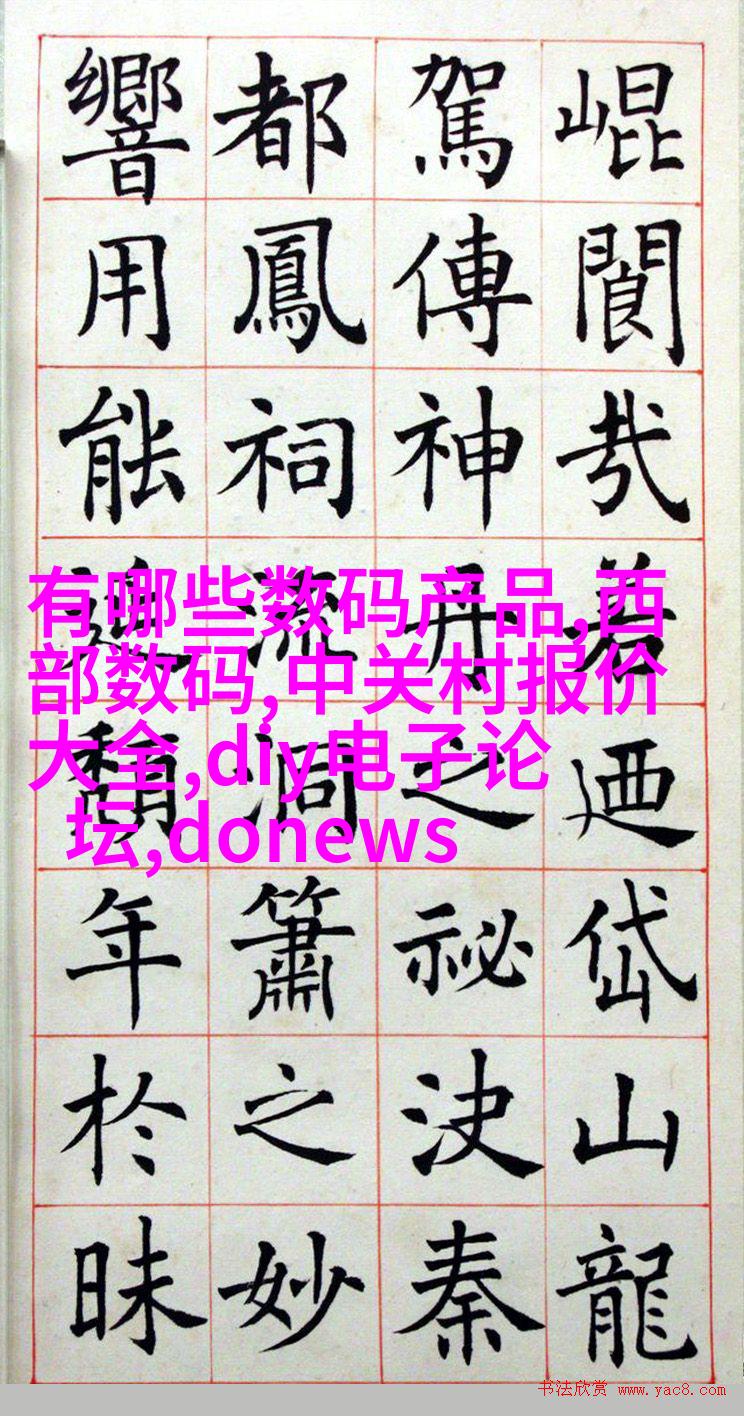 崐閬㢤若迺岱山龍
駕傳神丹之祕決秦
都鳳祠流洞簫之妙
響用能年於昧
有哪些数码产品,西
部数码,中关村报价
大全,diy电子论
坛,donews
书法欣赏 www.yac8.com